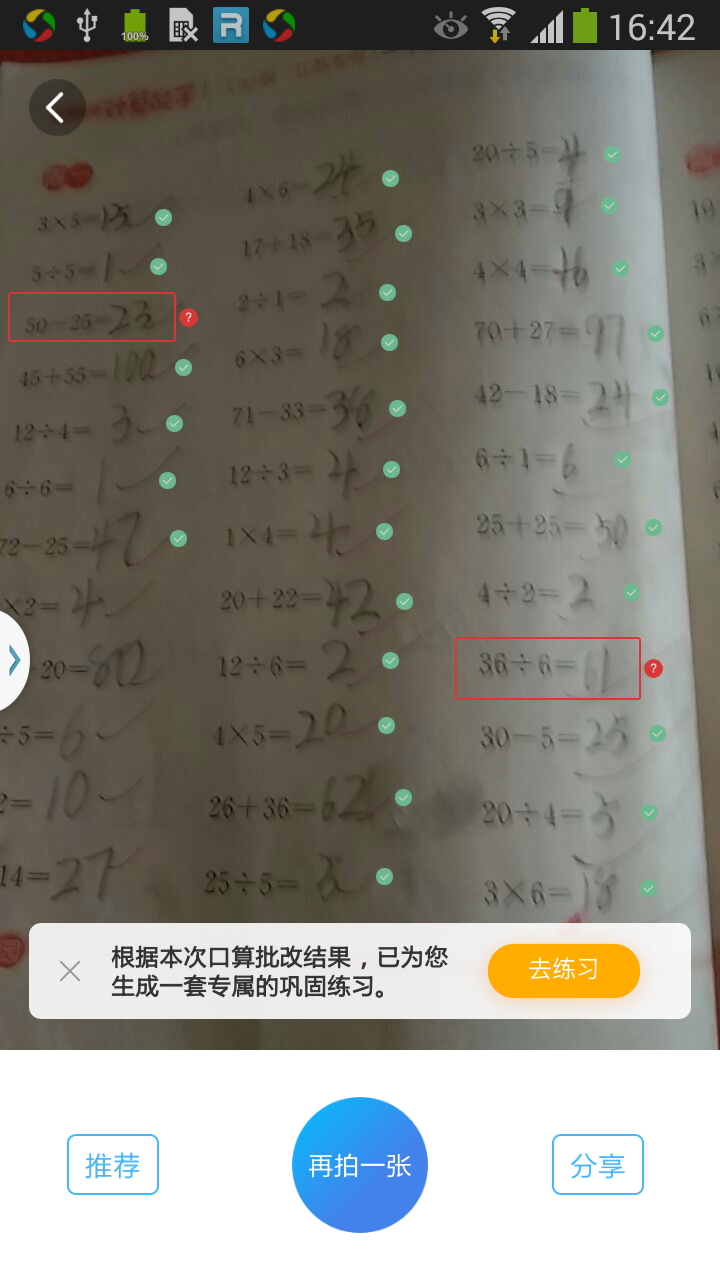 100%
16:42
3×5=15
5÷5=1
50-25=23
45+55=100
12÷4=3
6÷6=1
72-25=47
×2=4
-20=80
÷5=6
2=10
14=27
4×6=24
17+18=35
2÷1=2
6×3=18
71-33=38
12÷3=4
1×4=4
20+22=42
12÷6=2
4×5=20
26+36=62
25÷5=5
20÷5=4
3×3=9
4×4=16
70+27=97
42-18=24
6÷1=6
25+25=50
4÷2=2
36÷6=61
30-5=25
20÷4=5
3×6=18
根据本次口算批改结果，已为您
生成一套专属的巩固练习。
去练习
推荐
再拍一张
分享